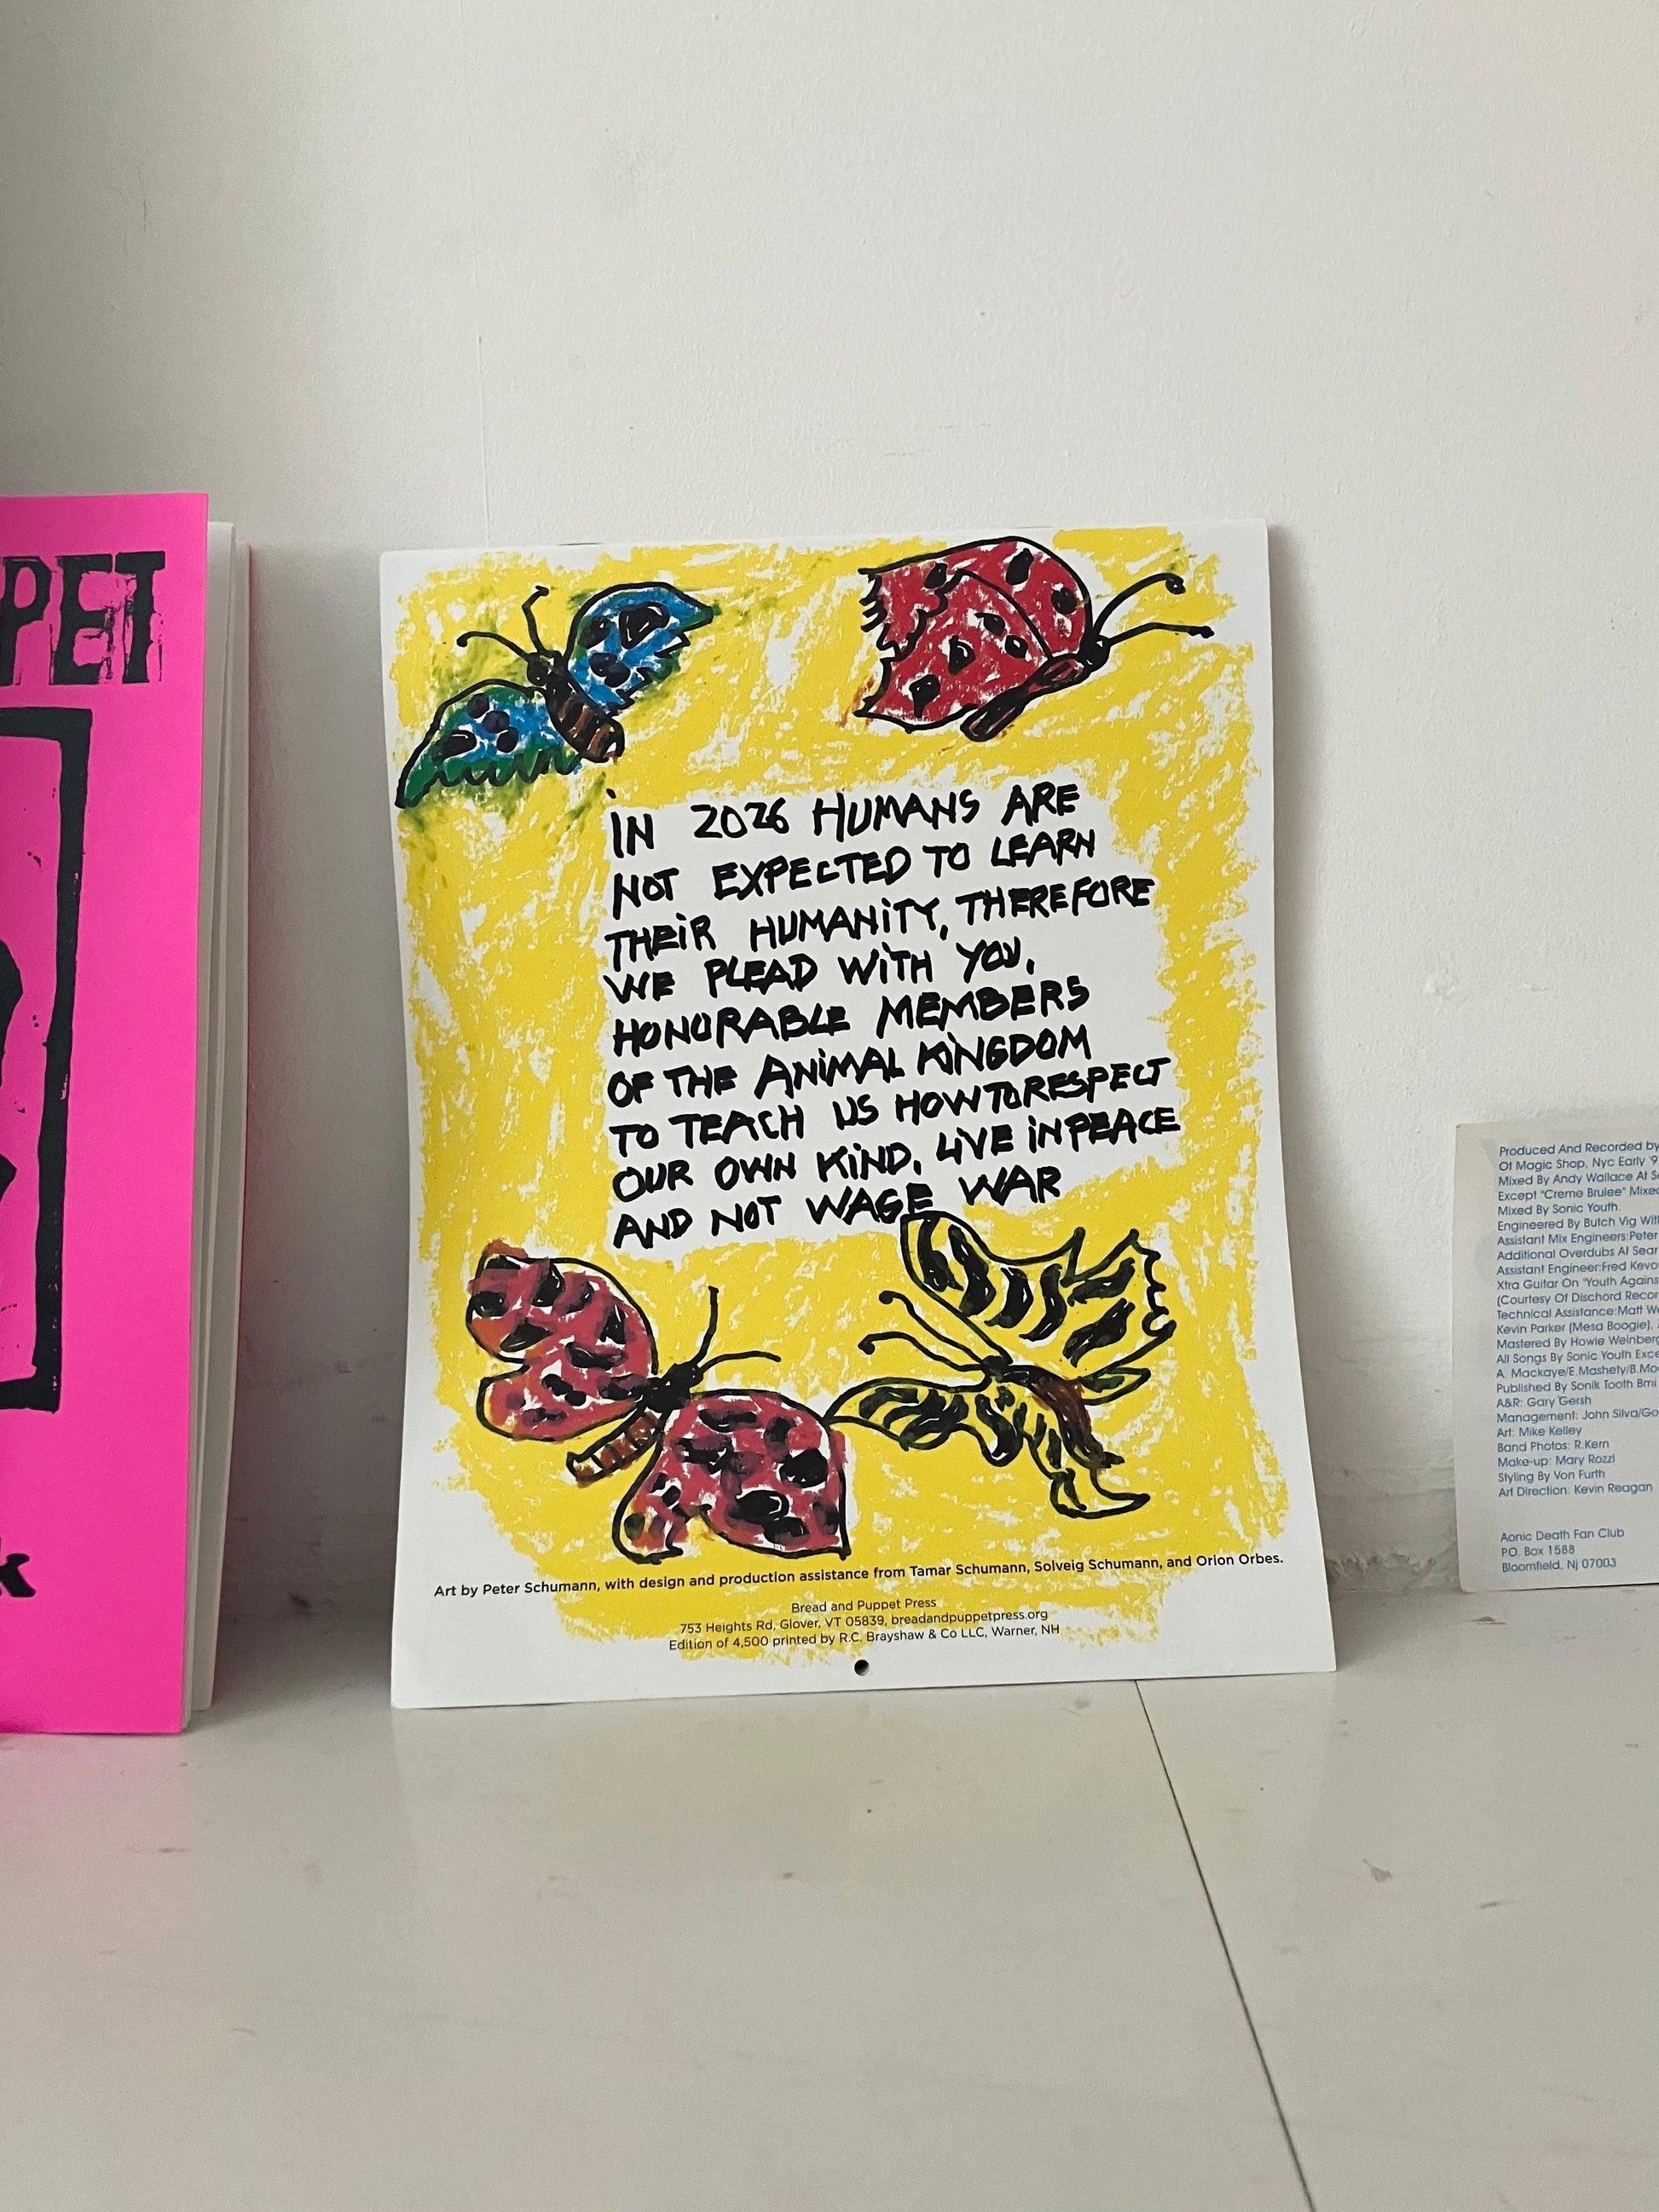 PET
k
IN 2026 HUMANS ARE
NOT EXPECTED TO LEARN
THEIR HUMANITY, THEREFORE
WE PLEAD WITH YOU,
HONORABLE MEMBERS
OF THE ANIMAL KINGDOM
TO TEACH US HOW TO RESPECT
OUR OWN KIND, LIVE IN PEACE
AND NOT WAGE WAR
Art by Peter Schumann, with design and production assistance from Tamar Schumann, Solveig Schumann, and Orion Orbes.
Bread and Puppet Press
753 Heights Rd, Glover, VT 05839, breadandpuppetpress.org
Edition of 4,500 printed by R.C. Brayshaw & Co LLC, Warner, NH
Produced And Recorded by
Of Magic Shop, Nyc Early '9
Mixed By Andy Wallace At
Except "Creme Brulee" Mixed
Mixed By Sonic Youth.
Engineered By Butch Vig With
Assistant Mix Engineers:Peter
Additional Overdubs At Sear
Assistant Engineer:Fred Kevo
Xtra Guitar On "Youth Agains
(Courtesy Of Dischord Recor
Technical Assistance:Matt
Kevin Parker (Mesa Boogie),
Mastered By Howie Weinberg
All Songs By Sonic Youth Exce
A. Mackaye/E.Mashety/B.Mo
Published By Sonik Tooth Bmi
A&R: Gary Gersh
Management: John Silva/Go
Art: Mike Kelley
Band Photos: R.Kern
Make-up: Mary Rozzi
Styling By Von Furth
Art Direction: Kevin Reagan
Aonic Death Fan Club
P.O. Box 1588
Bloomfield, Nj 07003